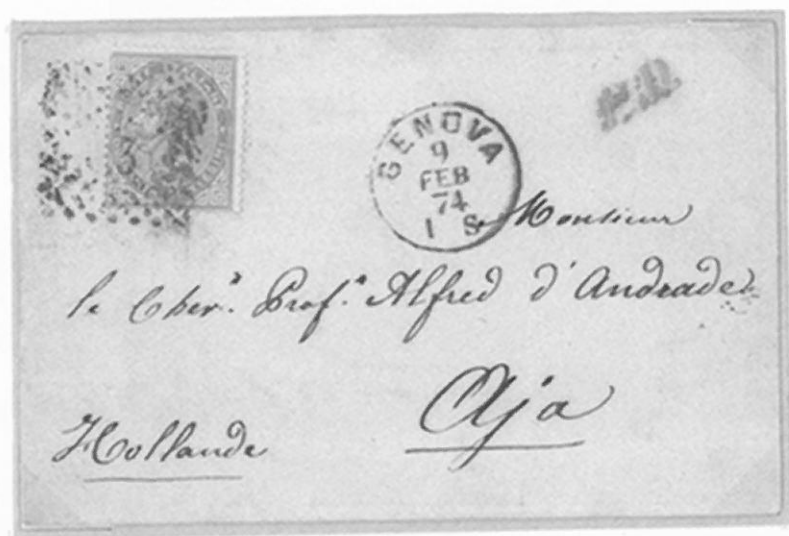 GENOVA
9
FEB
74
1 S
Monsieur
le Cher.ʳ Prof.ʳ Alfred d'Andrade
Aja
Hollande